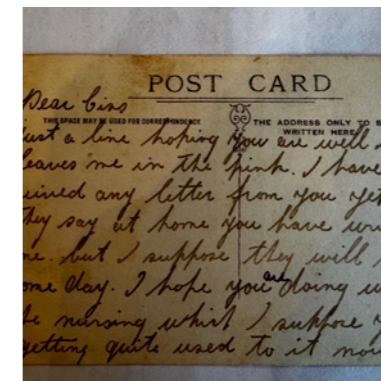 POST CARD
Dear Ciss
THIS SPACE MAY BE USED FOR CORRESPONDENCE
THE ADDRESS ONLY TO B
WRITTEN HERE
just a line hoping you are well
leaves me in the pink. I have
ceived any letter from you yet
they say at home you have wri
me. but I suppose they will
ome day. I hope you are doing w
nursing whist I suppose
getting quite used to it now